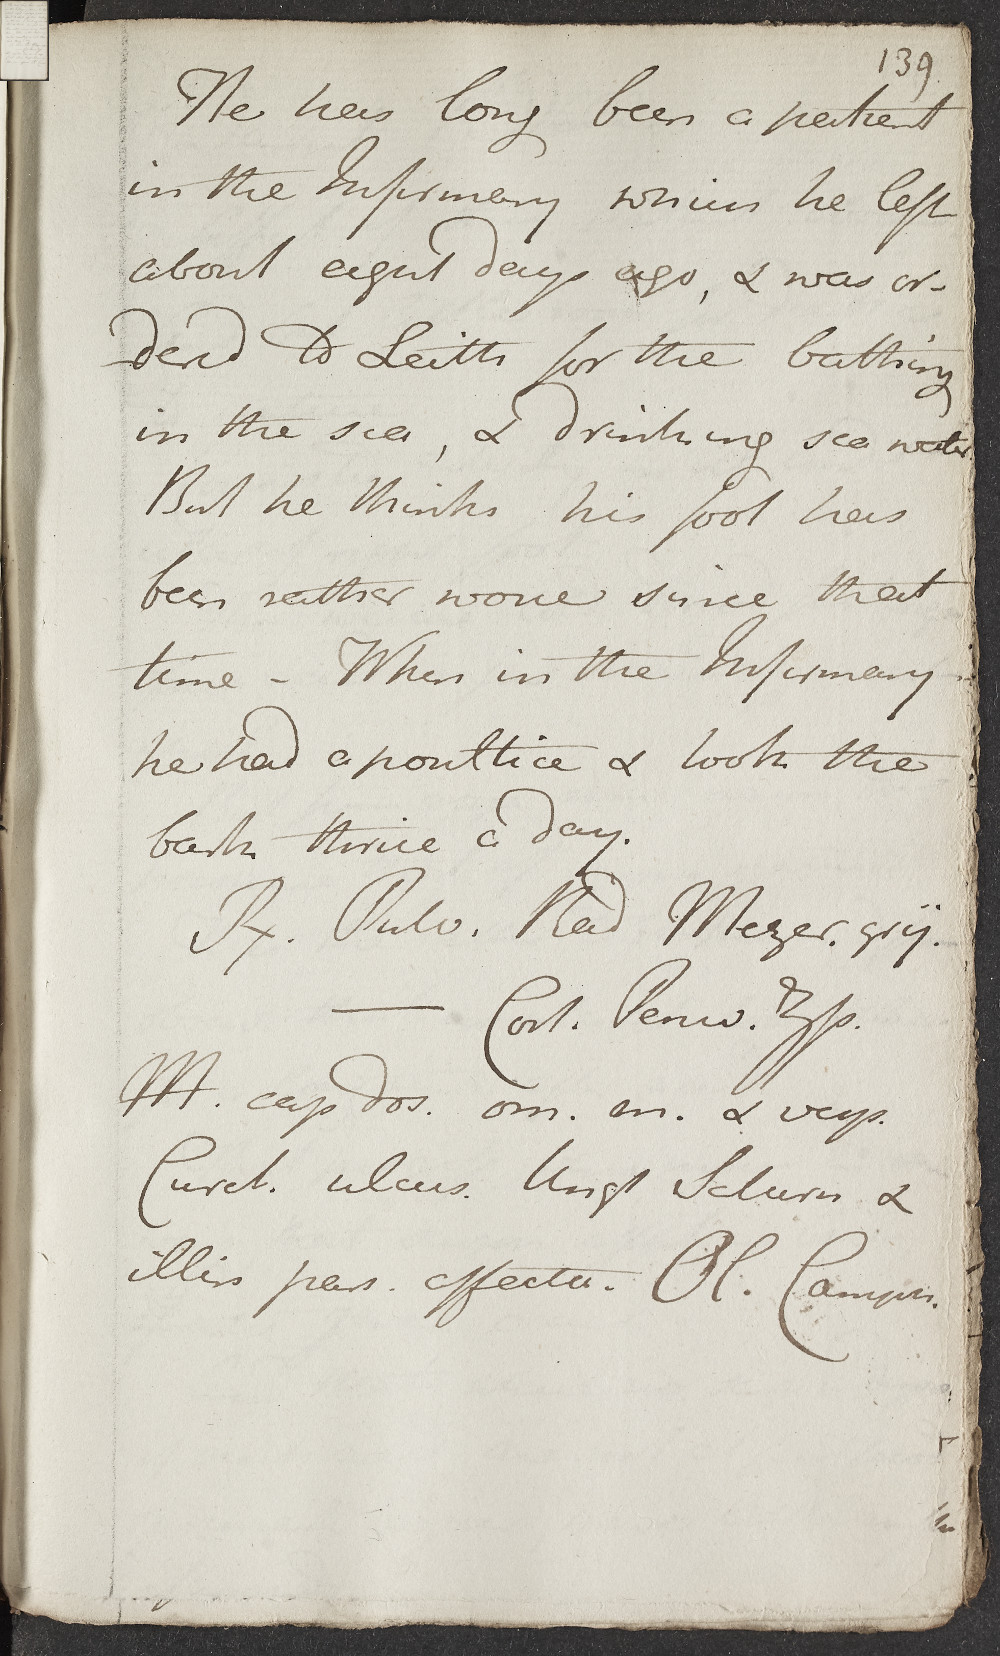 139
He has long been a patient
in the Infirmary which he left
about eight days ago, & was or-
dered to Leith for the bathing
in the sea, & drinking sea water.
But he thinks his foot has
been rather worse since that
time - When in the Infirmary
he had a poultice & took the
bark thrice a day.
℞. Pulv. Rad Mezer. grij.
— Cort. Peruv. ʒss.
M. cap dos. om. m. & vesp.
Curet. ulcus. Ungt Saturn &
illin pars. affecta. Ol. Camph.